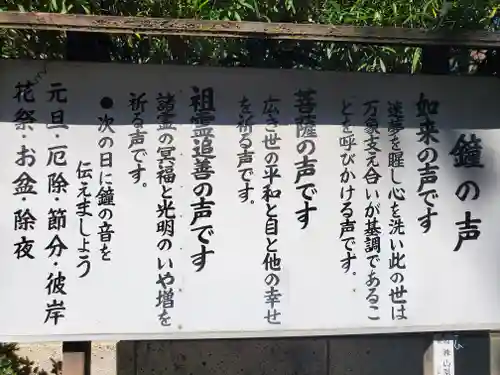 鐘の声
如来の声です
迷夢を醒し心を洗い此の世は
万象支え合いが基調であるこ
とを呼びかける声です。
菩薩の声です
広き世の平和と自と他の幸せ
を祈る声です。
祖霊追善の声です
諸霊の冥福と光明のいや増を
祈る声です。
●次の日に鐘の音を
伝えましょう
元旦・厄除・節分・彼岸
花祭・お盆・除夜